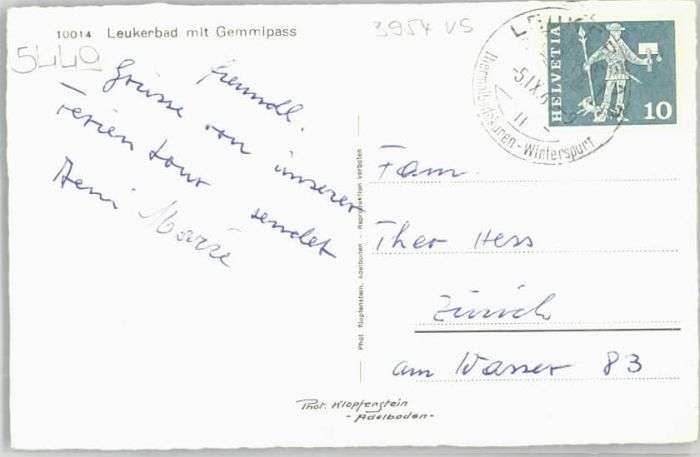 10014 Leukerbad mit Gemmipass
3954 VS
5440
freundl.
Grüsse von unserer
Ferien tour sendet
Marie
HELVETIA
10
-5.IX.
Thermalbadekuren-Wintersport
Fam.
Theo Hess
Zürich
am Wasser 83
Phot. Klopfenstein, Adelboden - Reproduktion verboten
Phot. Klopfenstein
-Adelboden-